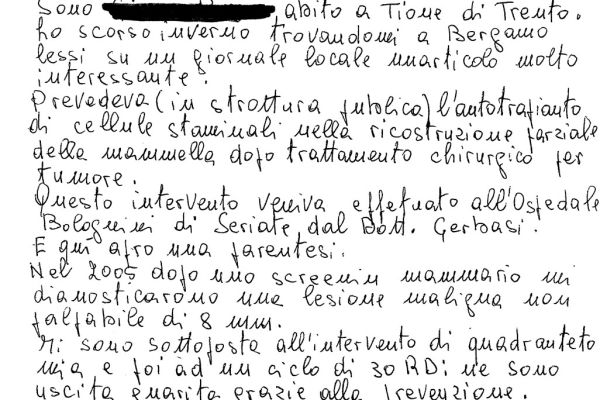 Sono abito a Tione di Trento.
Lo scorso inverno trovandomi a Bergamo
lessi su un giornale locale un articolo molto
interessante.
Prevedeva (in struttura pubblica) l'autotrapianto
di cellule staminali nella ricostruzione parziale
della mammella dopo trattamento chirurgico per
tumore.
Questo intervento veniva effetuato all'Ospedale
Bolognini di Seriate dal Dott. Gerbasi.
E qui apro una parentesi.
Nel 2005 dopo uno screenin mammario mi
dianosticarono una lesione maligna non
palpabile di 8 mm.
Mi sono sottoposta all'intervento di quadranteto
mia e poi ad un ciclo di 30 RD: ne sono
uscita guarita grazie alla Prevenzione.